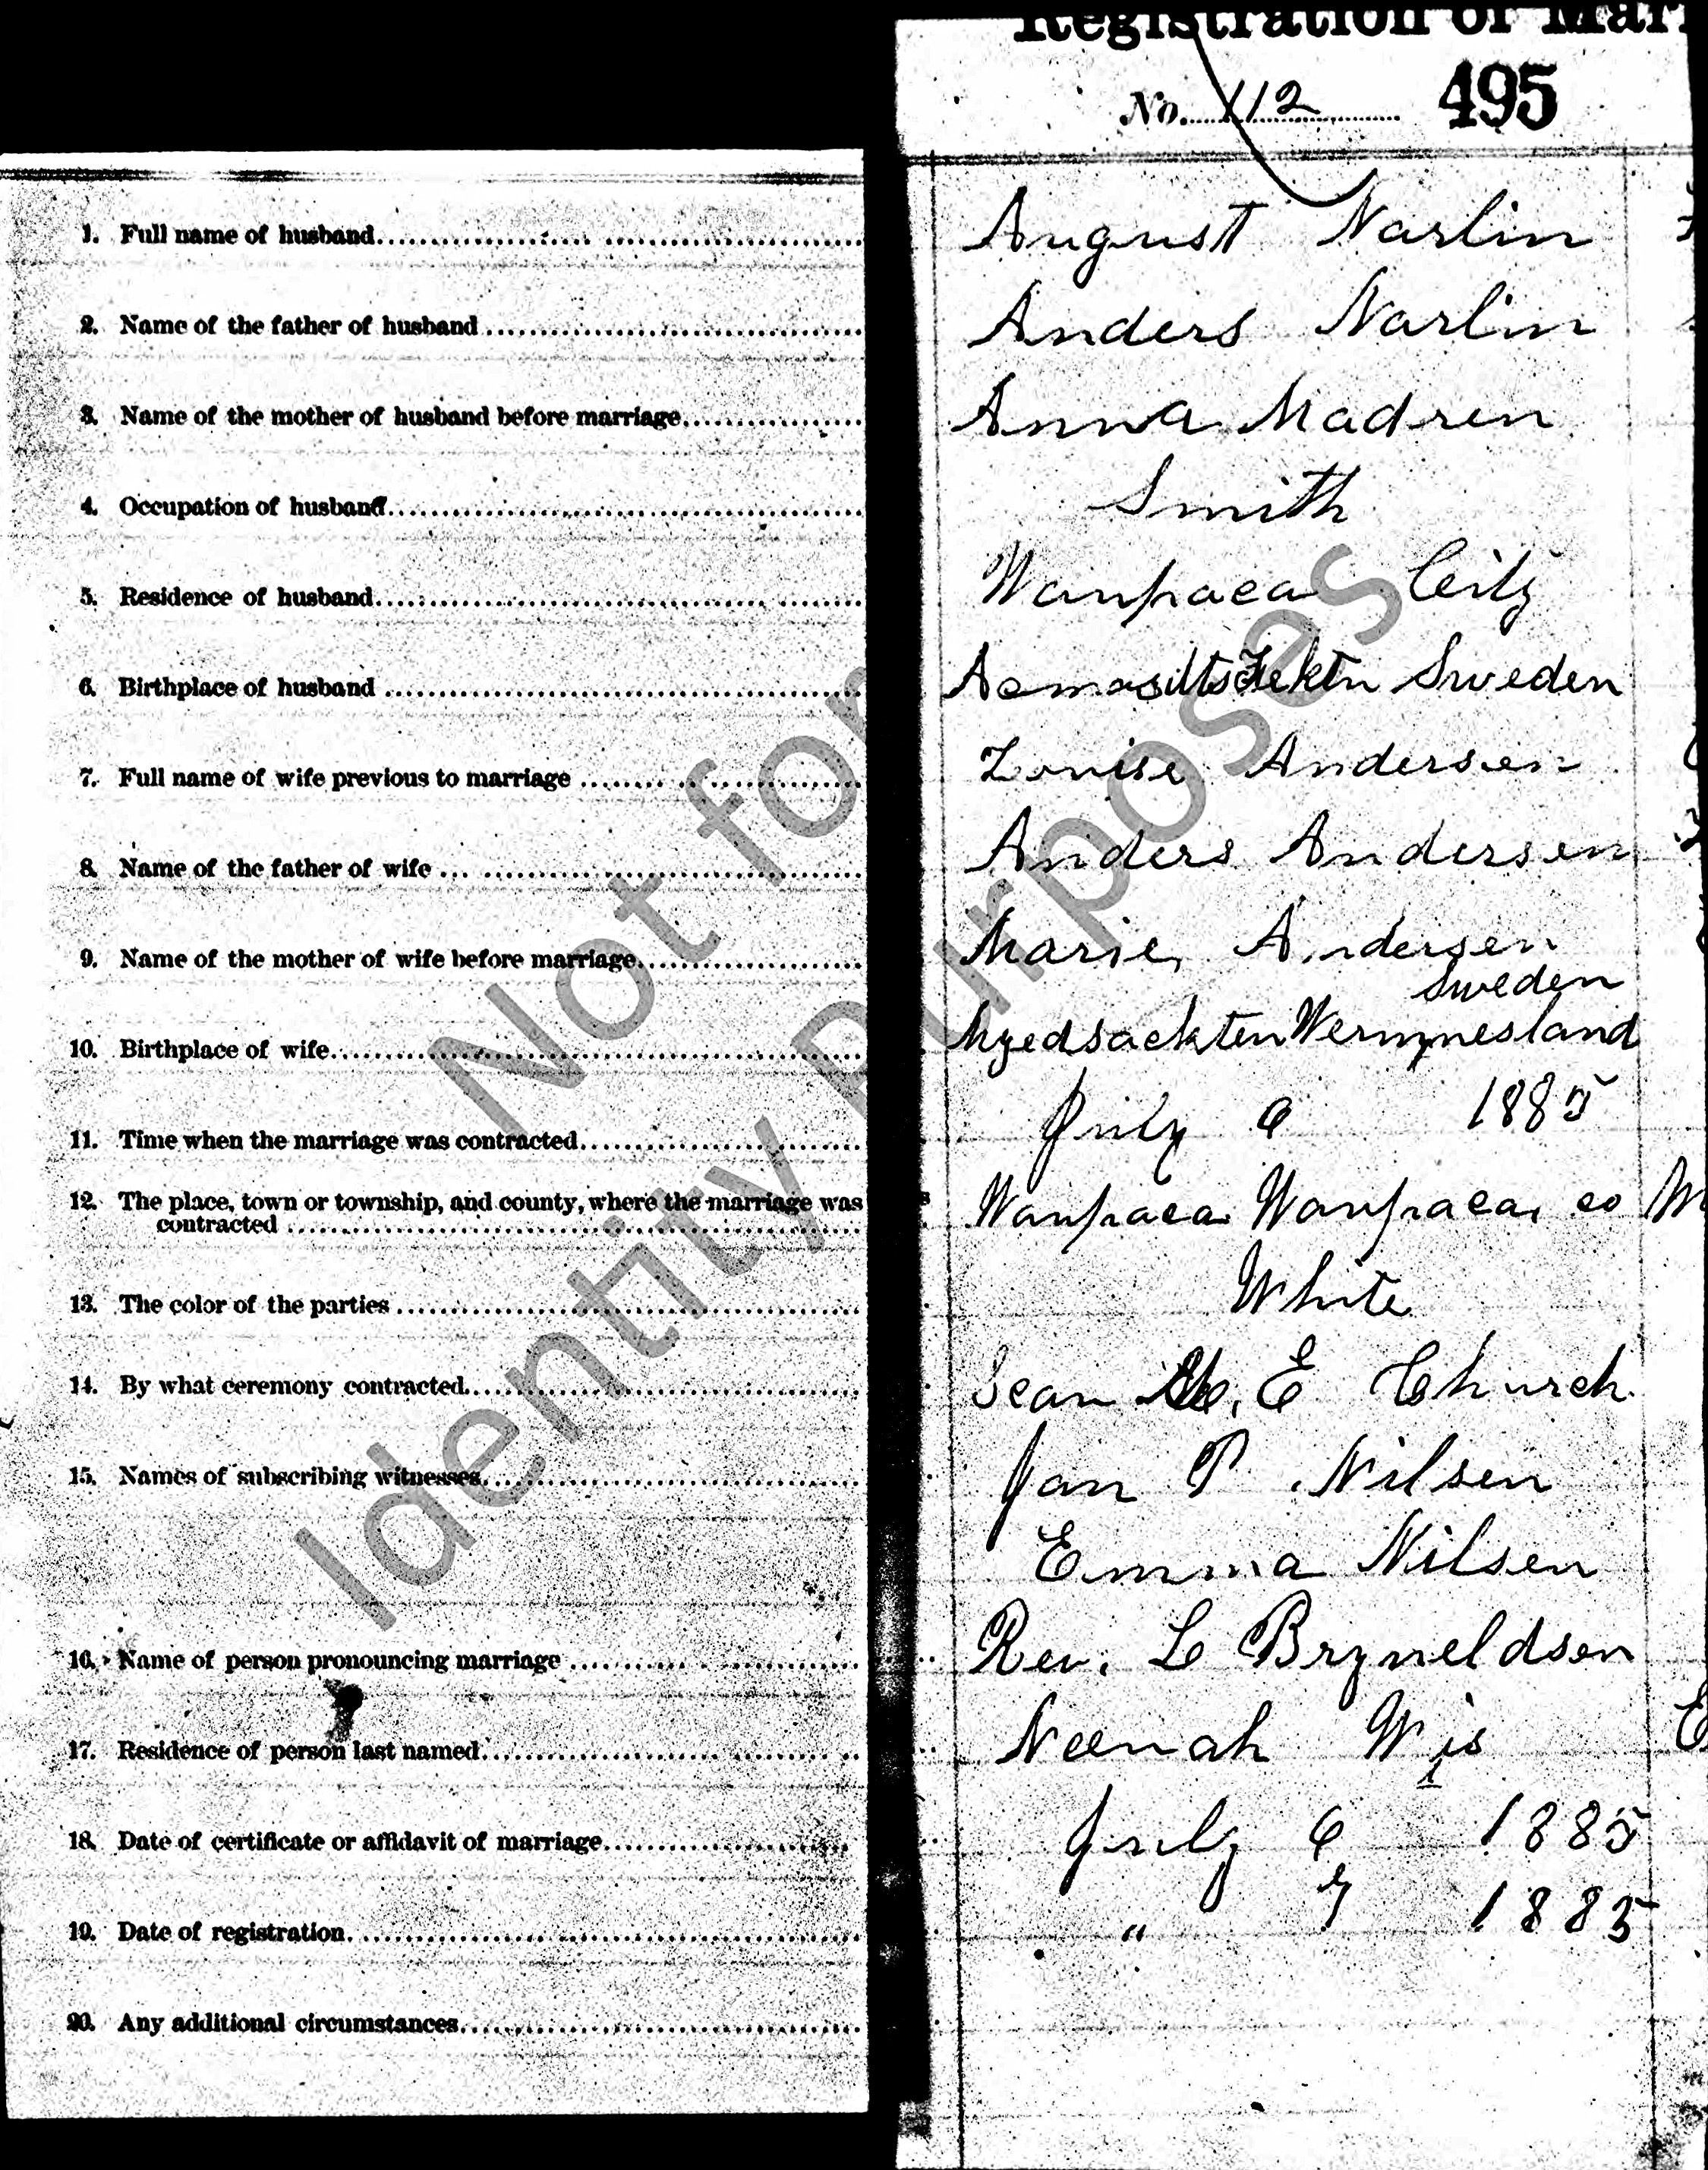 Registration of Mar
No. 112 495
1. Full name of husband August Narlin
2. Name of the father of husband Anders Narlin
3. Name of the mother of husband before marriage Anna Madren
4. Occupation of husband Smith
5. Residence of husband Waupaca City
6. Birthplace of husband Sweden
7. Full name of wife previous to marriage Louise Andersen
8. Name of the father of wife Anders Andersen
9. Name of the mother of wife before marriage Marie Andersen
Sweden
10. Birthplace of wife Wermnesland
11. Time when the marriage was contracted July 6 1885
12. The place, town or township, and county, where the marriage was
contracted Waupaca Waupaca co
13. The color of the parties White
14. By what ceremony contracted Scan M. E Church
15. Names of subscribing witnesses Jan P Nilsen
Emma Nilsen
16. Name of person pronouncing marriage Rev. L Bryneldsen
17. Residence of person last named Neenah Wis
18. Date of certificate or affidavit of marriage July 6 1885
19. Date of registration " 7 1885
20. Any additional circumstances
Not for
Identity Purposes